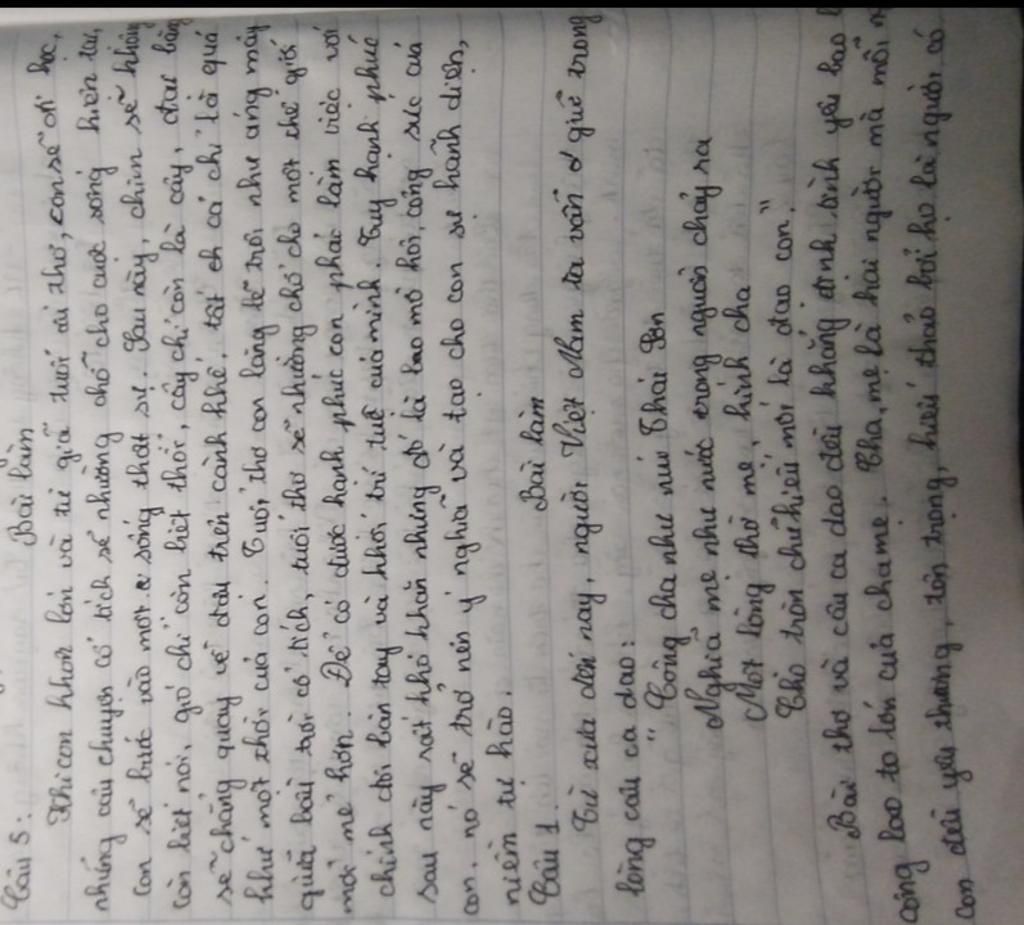 Câu 5: Bài làm
Khi con khôn lớn và từ giã tuổi ấu thơ, con sẽ đi học,
những câu chuyện cổ tích sẽ nhường chỗ cho cuộc sống hiện tại,
con sẽ bước vào một cuộc sống thật sự. Sau này, chim sẽ không
còn biết nói, gió chỉ còn biết thổi, cây chỉ còn là cây, đại bàng
sẽ chẳng quay về đậu trên cành khế, tất cả chỉ là quá
khứ một thời của con. Tuổi thơ con lặng lẽ trôi như áng mây
giữa bầu trời cổ tích, tuổi thơ sẽ nhường chỗ cho một thế giới
mới mẻ hơn. Để có được hạnh phúc con phải làm việc với
chính đôi bàn tay và khối trí tuệ của mình. Tuy hạnh phúc
sau này rất khó khăn nhưng đó là bao mồ hôi, công sức của
con, nó sẽ trở nên ý nghĩa và tạo cho con sự hãnh diện,
niềm tự hào.
Câu 1. Bài làm
Từ xưa đến nay, người Việt Nam ta vẫn giữ trong
lòng câu ca dao:
" Công cha như núi Thái Sơn
Nghĩa mẹ như nước trong nguồn chảy ra
Một lòng thờ mẹ, kính cha
Cho tròn chữ hiếu mới là đạo con."
Bài thơ và câu ca dao đều khẳng định tình yêu bao
công lao to lớn của cha mẹ. Cha, mẹ là hai người mà mỗi
con đều yêu thương, tôn trọng, hiếu thảo bởi họ là người có